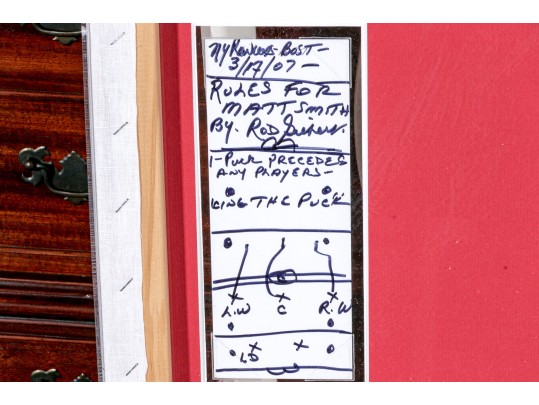 NY Rangers - BOST -
3/17/07 -
RULES FOR
MATT SMITH
By. ROD
1- PUCK PRECEDES
ANY PLAYERS -
ICING THE PUCK
L.W C R.W
LD